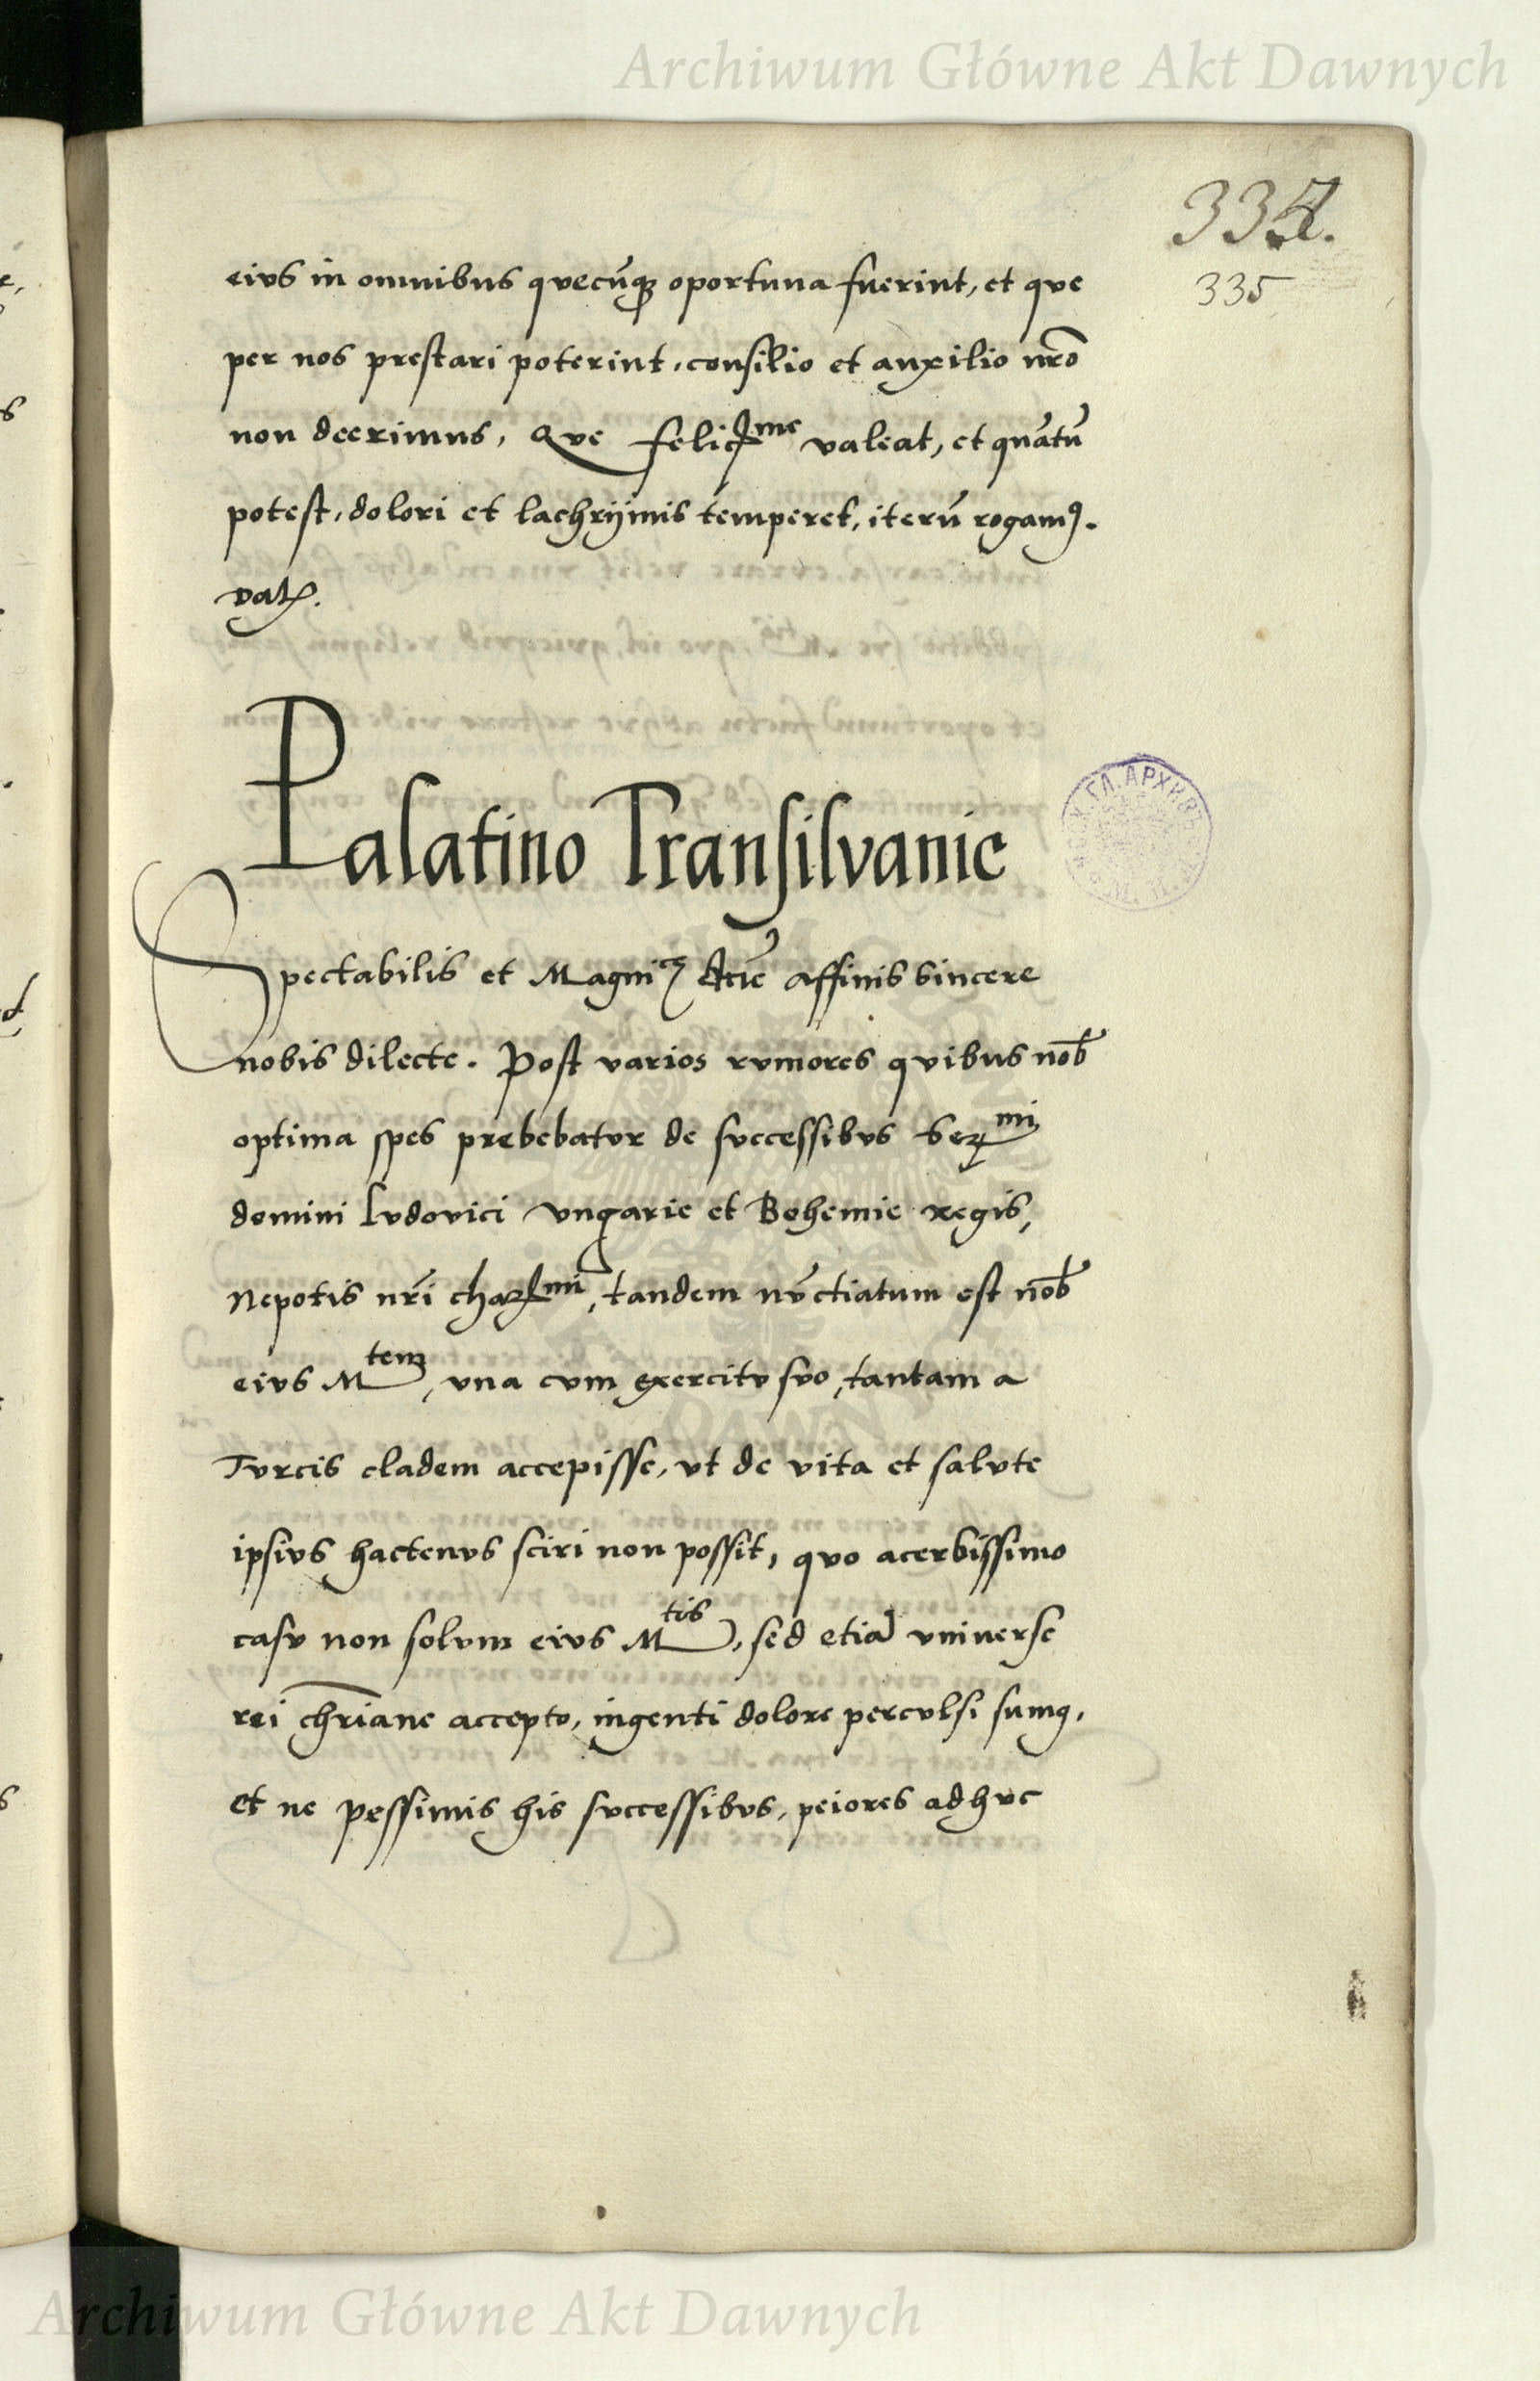 Archiwum Główne Akt Dawnych
335
eius in omnibus quecūq₃ oportuna fuerint, et que
per nos prestari poterint, consilio et auxilio nr̄o
non deerimus, Que feliciſ^me valeat, et quātū
potest, dolori et lachrijmis temperet, iterū rogamꝰ.
Palatino Transilvanie
Spectabilis et Magnice affinis sincere
nobis dilecte. Post varios rvmores quibus nob̄
optima spes prebebatvr de svccessibvs Ser^mi
domini Lvdovici Vngarie et Bohemie regis,
Nepotis nr̄i chariſ^mi, tandem nv̄ctiatum est nob̄
eivs M^tem, vna cvm exercitv svo, tantam a
Tvrcis cladem accepisse, vt de vita et salvte
ipsivs hactenvs sciri non possit, qvo acerbissimo
casv non solvm eivs M^tis, sed etiā vniverse
rei chr̄iane accepto, ingenti dolore percvlsi sumꝰ,
et ne pessimis his svccessibvs, peiores adhvc
Archiwum Główne Akt Dawnych